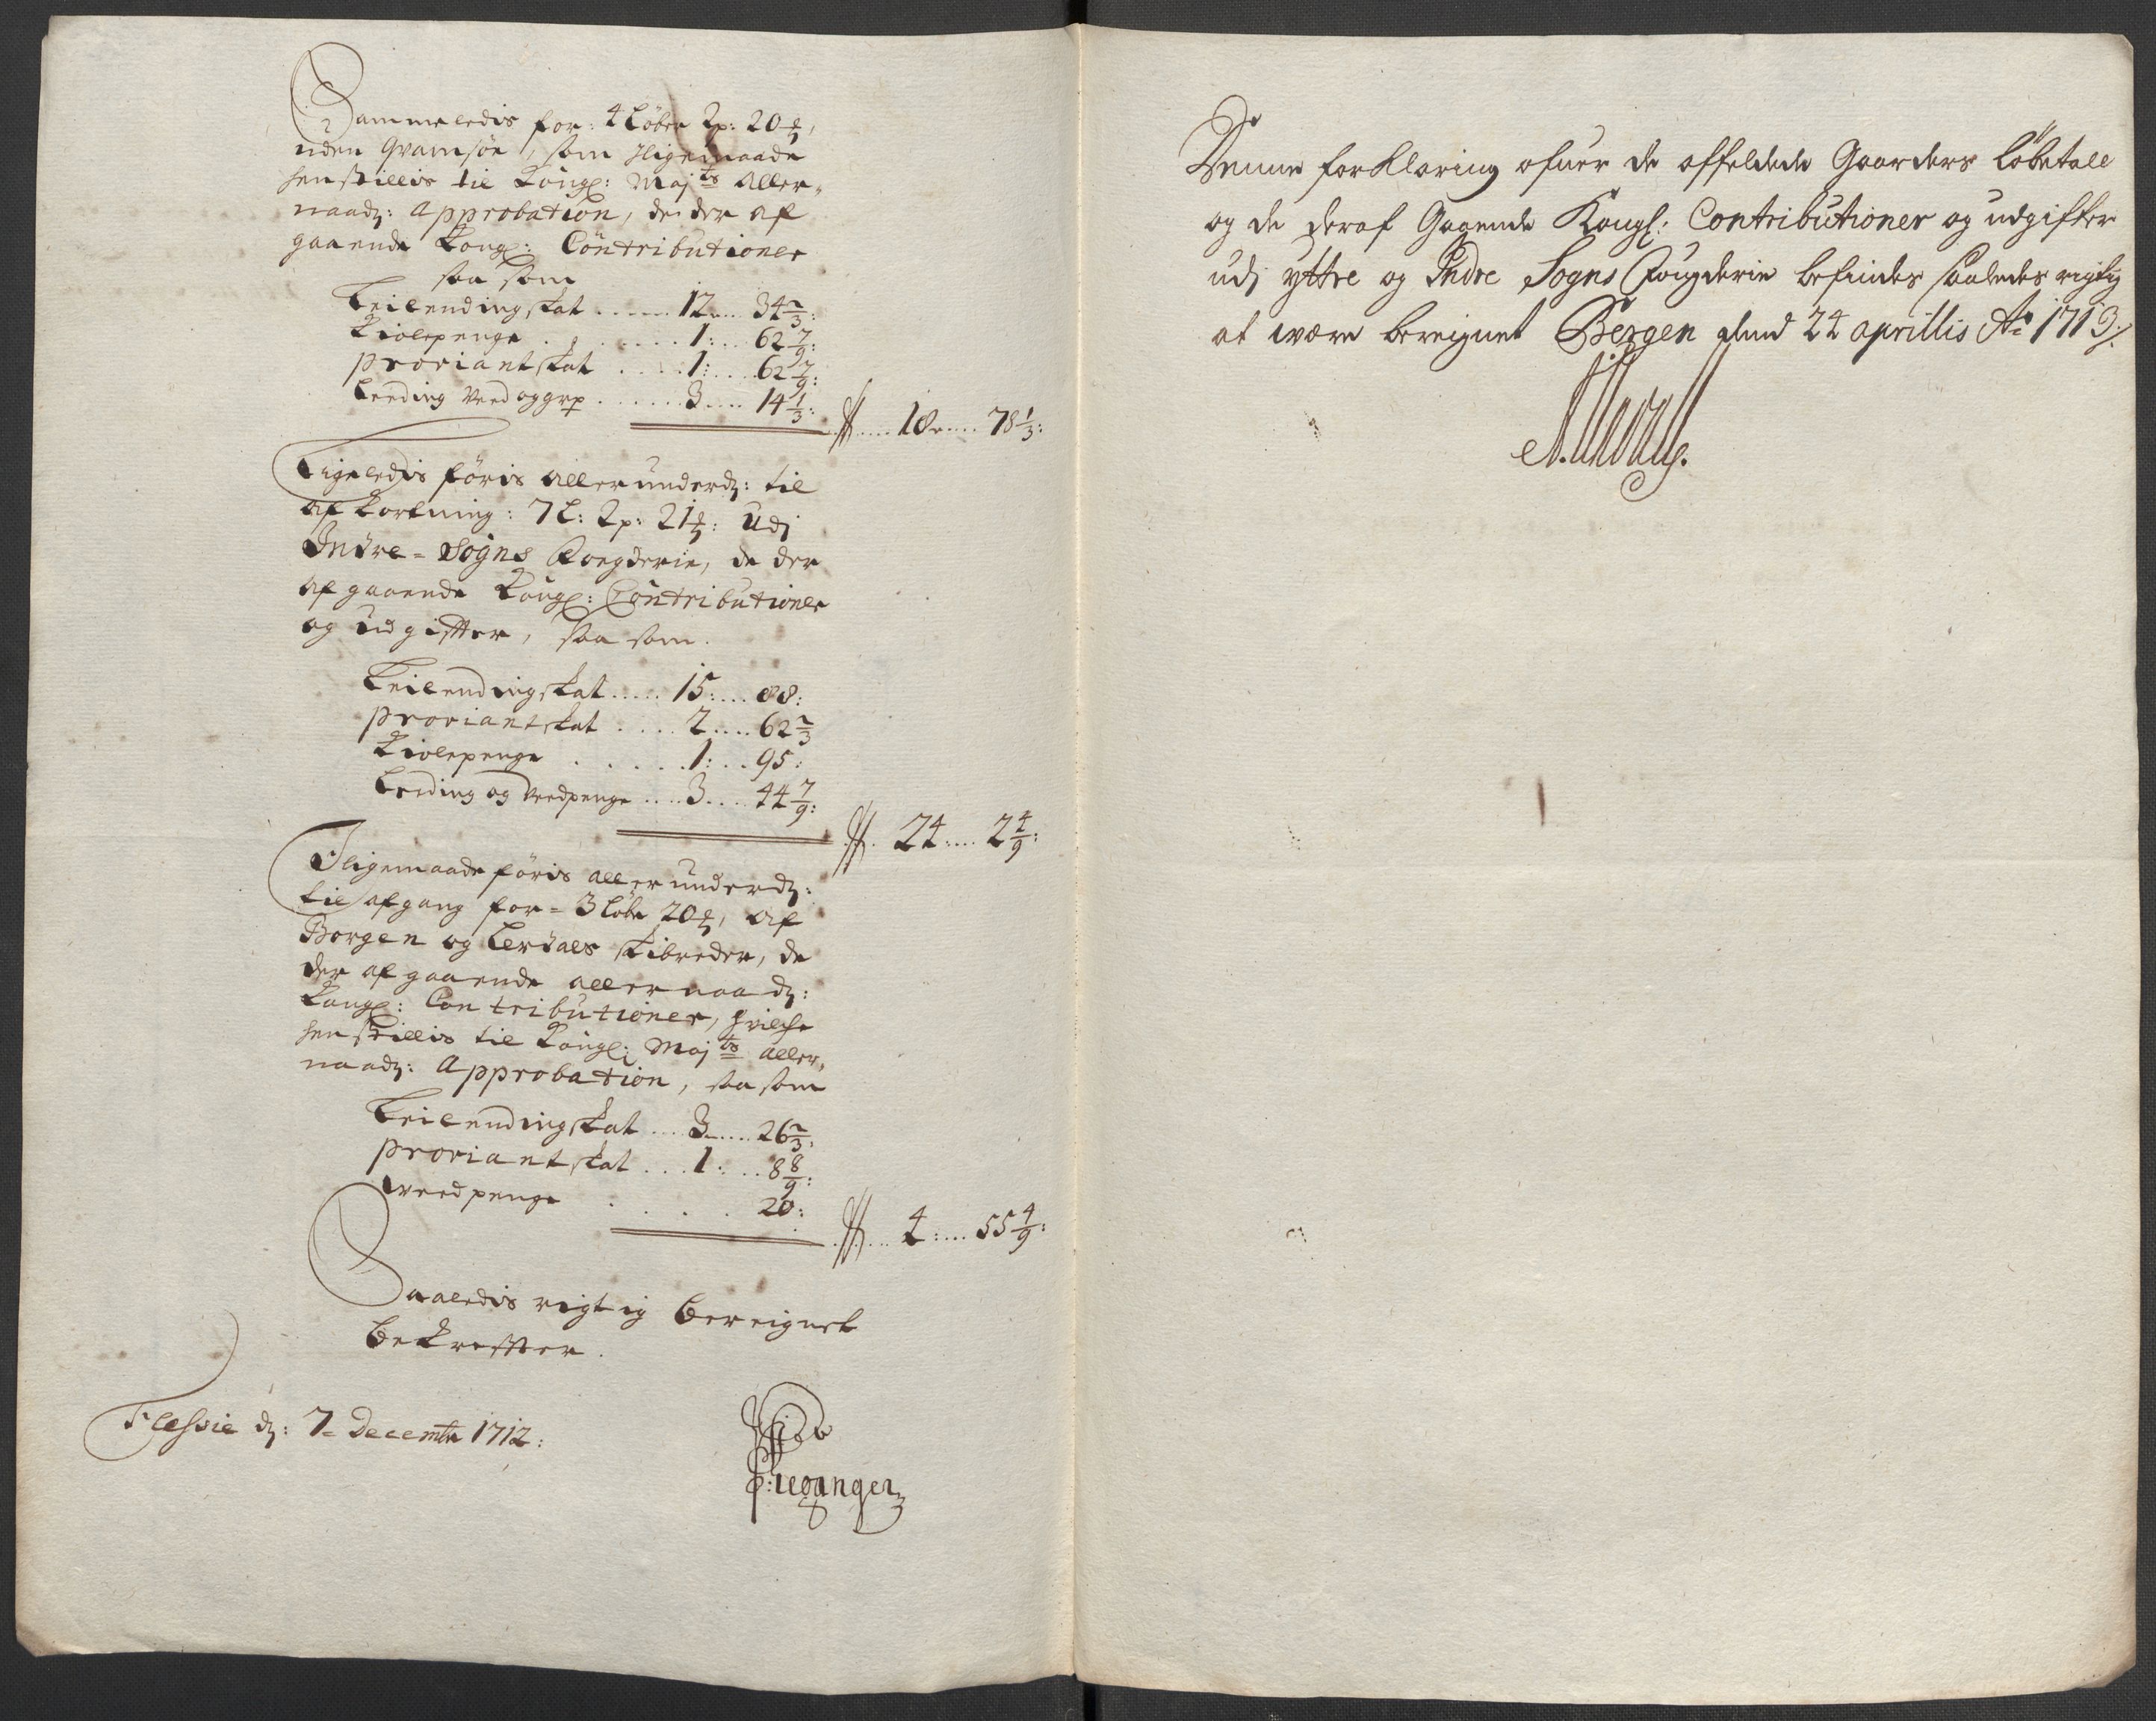 Sammeledis for: 4 Løber 2p: 20 ₰,
uden Qvamsöe, som Jligemaade
henstillis til Kongl: Maj^ts Aller-
naad: Approbation, de der af
gaaende Kongl: Contributioner
saa som
Leilendingskat ...... 12 .... 34 2/3:
Kiolepenge ........ 1: ... 62 7/9:
Proviantskat .... 1: .... 62 7/9:
Leeding Veed og grp ...... 3 .... 14 1/3:
.... 18 .... 78 1/3:
Ligeledis føris allerunderd: til
afkortning: 7 L: 2p: 21 ₰: Udj
Indre-Sogns Fogderie, de der
af gaaende Kongl: Contributioner
og Udgiffter, saa som.
Leilendingskat ..... 15: ... 88:
Proviantskat .... 2 .... 62 2/3
Kiolepenge ..... 1: .. 95:
Leeding og Veedpenge .... 3 .... 44 7/9:
24: .... 2 4/9:
Jligemaade føris allerunderd:
til afgang for = 3 Løbe 20 ₰, af
Borgen og Lerdals skibreder, de
der af gaaende allernaad:
Kongl: Contributioner, hvilche
henstillis til Kongl: Maj^ts aller,
naad: Approbation, saa som
Leilendingskat ... 3 .... 26 2/3:
Proviantskat ... 1: .. 8 8/9:
Veedpenge .... 20:
... 4: .... 55 4/9:
Saaledis rigtig bereignet
bekreffter.
Flesvie d: 7 Decembr 1712:
Denne forklaring ofuer de affeldede Gaarders Løbetall
og de deraf Gaaende Kongl: Contributioner og udgifter
udj yttre og Indre Sogns Fougderie befindes saaledes rigtig
at være bereignet Bergen dend 24 aprillis Ao 1713.